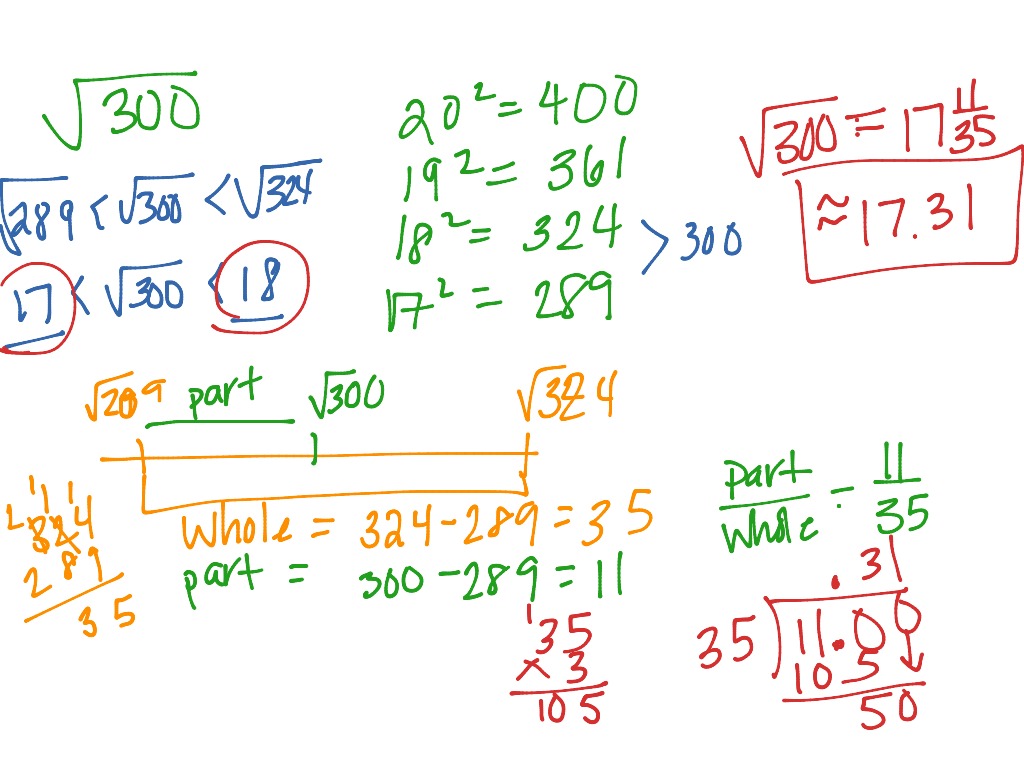 √300
√289 < √300 < √324
17 < √300 < 18
20² = 400
19² = 361
18² = 324
17² = 289
> 300
√300 = 17 11/35
≈ 17.31
√289 part √300 √324
324
289
35
Whole = 324 - 289 = 35
part = 300 - 289 = 11
35
× 3
105
part/whole = 11/35
.31
35 11.00
10 5
50